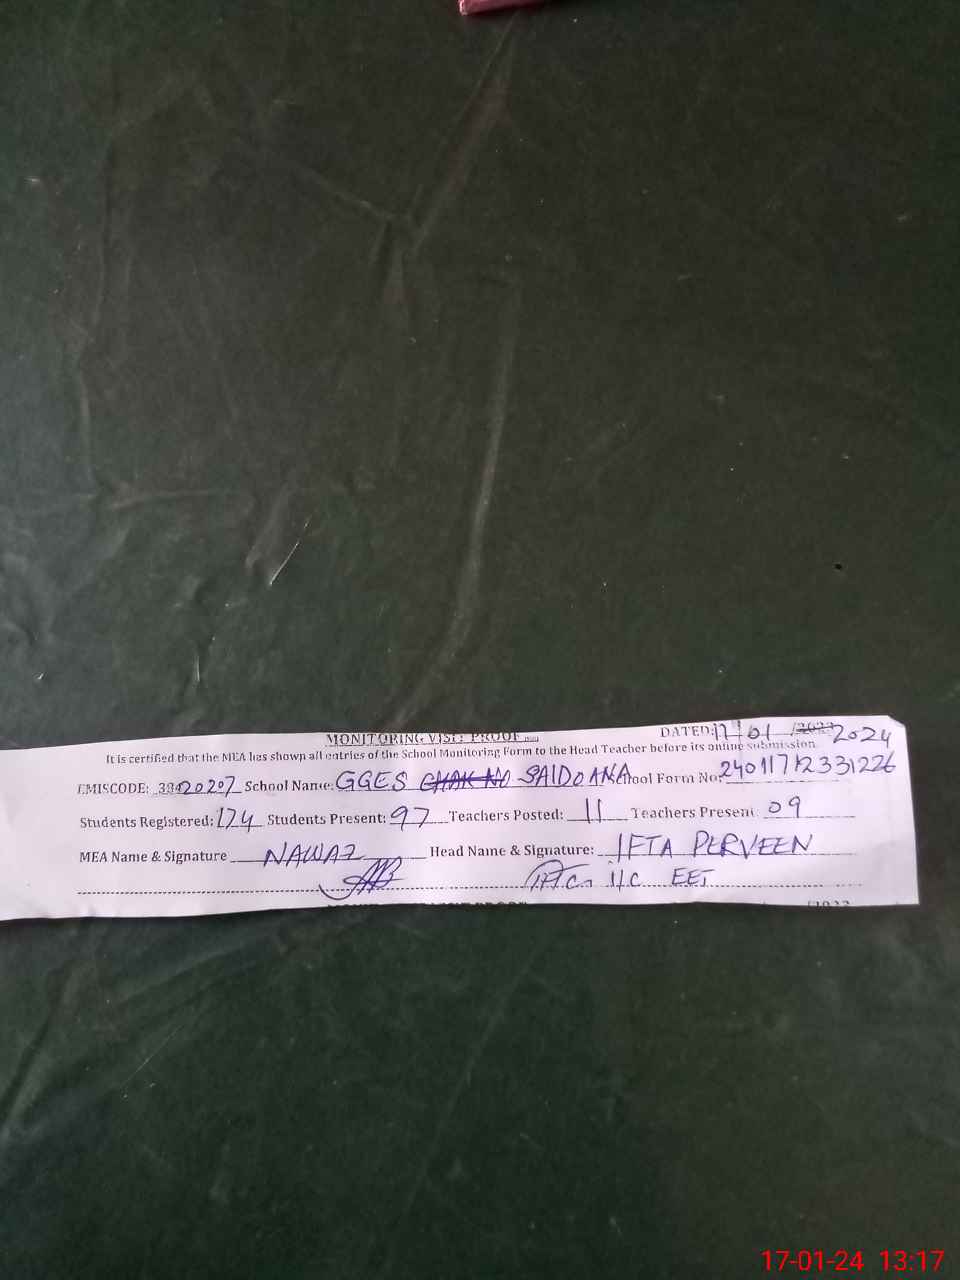 MONITORING VISIT PROOF
DATED: 17/01/2023 2024
It is certified that the MEA has shown all entries of the School Monitoring Form to the Head Teacher before its online submission.
EMISCODE: 38420207 School Name: GGES CHAK NO SAIDOANA School Form No: 24011712331226
Students Registered: 174 Students Present: 97 Teachers Posted: 11 Teachers Present: 09
MEA Name & Signature NAWAZ Head Name & Signature: IFTA PERVEEN
I/C EET
/2023
17-01-24 13:17